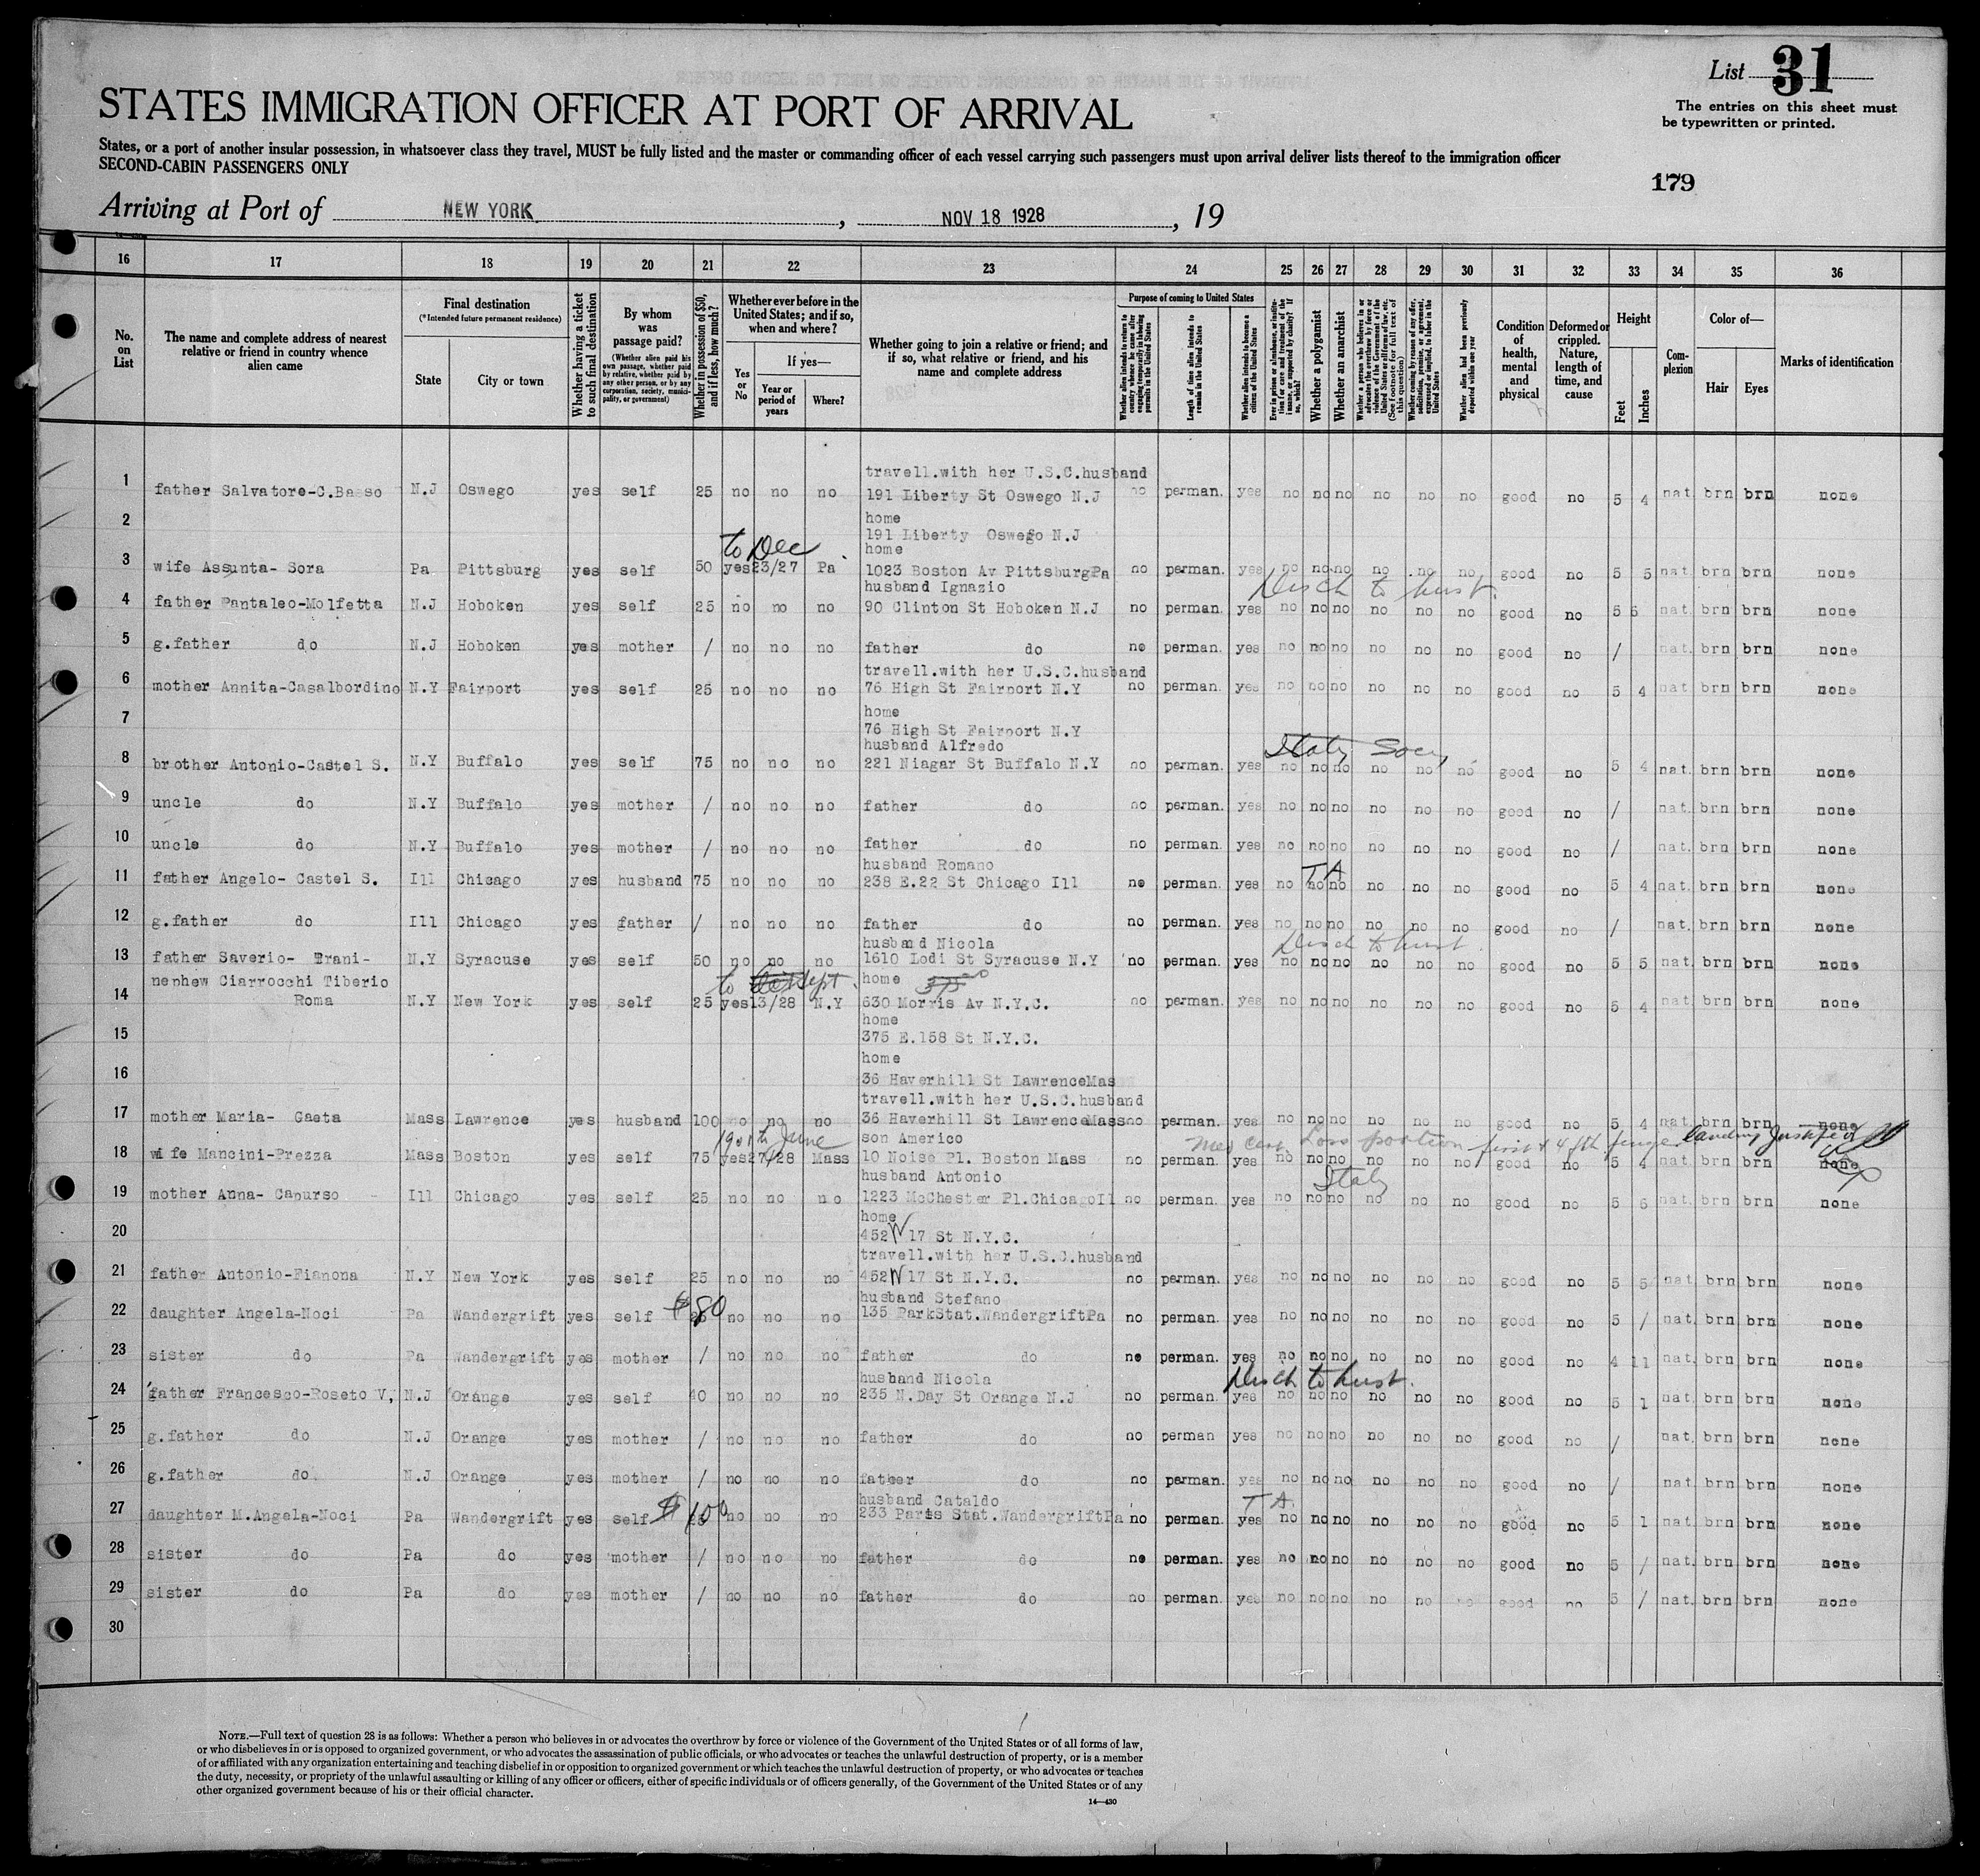 List 31
The entries on this sheet must
be typewritten or printed.
STATES IMMIGRATION OFFICER AT PORT OF ARRIVAL
States, or a port of another insular possession, in whatsoever class they travel, MUST be fully listed and the master or commanding officer of each vessel carrying such passengers must upon arrival deliver lists thereof to the immigration officer
SECOND-CABIN PASSENGERS ONLY
179
Arriving at Port of NEW YORK, NOV 18 1928, 19
16 17 18 19 20 21 22 23 24 25 26 27 28 29 30 31 32 33 34 35 36
No. on List
The name and complete address of nearest relative or friend in country whence alien came
Final destination
(*Intended future permanent residence)
State
City or town
Whether having a ticket to such final destination
By whom was passage paid?
(Whether alien paid his own passage, whether paid by relative, whether paid by any other person, or by any corporation, society, municipality, or government)
Whether in possession of $50, and if less, how much?
Whether ever before in the United States; and if so, when and where?
Yes or No
If yes—
Year or period of years
Where?
Whether going to join a relative or friend; and if so, what relative or friend, and his name and complete address
Purpose of coming to United States
Whether alien intends to return to country whence he came after engaging temporarily in laboring pursuits in the United States
Length of time alien intends to remain in the United States
Whether alien intends to become a citizen of the United States
Whether a polygamist
Whether an anarchist
Whether alien had been previously deported within one year
Condition of health, mental and physical
Deformed or crippled. Nature, length of time, and cause
Height
Feet
Inches
Complexion
Color of—
Hair
Eyes
Marks of identification
travell.with her U.S.C.husband
1 father Salvatore-C.Basso N.J Oswego yes self 25 no no no 191 Liberty St Oswego N.J no perman. yes no no no no no no good no 5 4 nat. brn brn none
2 home
191 Liberty Oswego N.J
to Dec
home
3 wife Assunta- Sora Pa Pittsburg yes self 50 yes 23/27 Pa 1023 Boston Av PittsburgPa no perman. yes no no no no no no good no 5 5 nat. brn brn none
husband Ignazio
Disch to husb.
4 father Pantaleo-Molfetta N.J Hoboken yes self 25 no no no 90 Clinton St Hoboken N.J no perman. yes no no no no no no good no 5 6 nat. brn brn none
5 g.father do N.J Hoboken yes mother / no no no father do no perman. yes no no no no no no good no / nat. brn brn none
travell.with her U.S.C.husband
6 mother Annita-Casalbordino N.Y Fairport yes self 25 no no no 76 High St Fairport N.Y no perman. yes no no no no no no good no 5 4 nat. brn brn none
7 home
76 High St Fairport N.Y
husband Alfredo
Italy Socy
8 brother Antonio-Castel S. N.Y Buffalo yes self 75 no no no 221 Niagar St Buffalo N.Y no perman. yes no no no no no no good no 5 4 nat. brn brn none
9 uncle do N.Y Buffalo yes mother / no no no father do no perman. yes no no no no no no good no / nat. brn brn none
10 uncle do N.Y Buffalo yes mother / no no no father do no perman. yes no no no no no no good no / nat. brn brn none
husband Romano
T A
11 father Angelo- Castel S. Ill Chicago yes husband 75 no no no 238 E.22 St Chicago Ill no perman. yes no no no no no no good no 5 4 nat. brn brn none
12 g.father do Ill Chicago yes father / no no no father do no perman. yes no no no no no no good no / nat. brn brn none
husband Nicola
Disch to husb.
13 father Saverio- Trani- N.Y Syracuse yes self 50 no no no 1610 Lodi St Syracuse N.Y no perman. yes no no no no no no good no 5 5 nat. brn brn none
nephew Ciarrocchi Tiberio to Sept. home 375
14 Roma N.Y New York yes self 25 yes 13/28 N.Y 630 Morris Av N.Y.C. no perman. yes no no no no no no good no 5 4 nat. brn brn none
home
15 375 E.158 St N.Y.C.
home
16 36 Haverhill St LawrenceMas
travell.with her U.S.C.husband
17 mother Maria- Gaeta Mass Lawrence yes husband 100 no no no 36 Haverhill St LawrenceMass no perman. yes no no no no no no good no 5 4 nat. brn brn none
June son Americo
Med cert Loss portion first & 4th finger landing justified
18 wife Mancini-Prezza Mass Boston yes self 75 yes 27/28 Mass 10 Noise Pl. Boston Mass no perman. yes no no no no no no good no 5 4 nat. brn brn none
husband Antonio
Italy
19 mother Anna- Capurso Ill Chicago yes self 25 no no no 1223 McChester Pl.ChicagoIl no perman. yes no no no no no no good no 5 6 nat. brn brn none
home
20 452 W 17 St N.Y.C.
travell.with her U.S.C.husband
21 father Antonio-Fianona N.Y New York yes self 25 no no no 452 W 17 St N.Y.C. no perman. yes no no no no no no good no 5 5 nat. brn brn none
husband Stefano
22 daughter Angela-Noci Pa Wandergrift yes self $80 no no no 135 ParkStat.WandergriftPa no perman. yes no no no no no no good no 5 / nat. brn brn none
23 sister do Pa Wandergrift yes mother / no no no father do no perman. yes no no no no no no good no 4 11 nat. brn brn none
husband Nicola
Disch to husb.
24 father Francesco-Roseto V, N.J Orange yes self 40 no no no 235 N.Day St Orange N.J no perman. yes no no no no no no good no 5 1 nat. brn brn none
25 g.father do N.J Orange yes mother / no no no father do no perman yes no no no no no no good no / nat. brn brn none
26 g.father do N.J Orange yes mother / no no no father do no perman. yes no no no no no no good no / nat. brn brn none
husband Cataldo
T A.
27 daughter M.Angela-Noci Pa Wandergrift yes self $100 no no no 233 Paris Stat.WandergriftPa no perman. yes no no no no no no good no 5 1 nat. brn brn none
28 sister do Pa do yes mother / no no no father do no perman. yes no no no no no no good no 5 / nat. brn brn none
29 sister do Pa do yes mother / no no no father do no perman. yes no no no no no no good no 5 / nat. brn brn none
30
NOTE.—Full text of question 28 is as follows: Whether a person who believes in or advocates the overthrow by force or violence of the Government of the United States or of all forms of law,
or who disbelieves in or is opposed to organized government, or who advocates the assassination of public officials, or who advocates or teaches the unlawful destruction of property, or is a member
of or affiliated with any organization entertaining and teaching disbelief in or opposition to organized government or which teaches the unlawful destruction of property, or who advocates or teaches
the duty, necessity, or propriety of the unlawful assaulting or killing of any officer or officers, either of specific individuals or of officers generally, of the Government of the United States or of any
other organized government because of his or their official character.
14—430